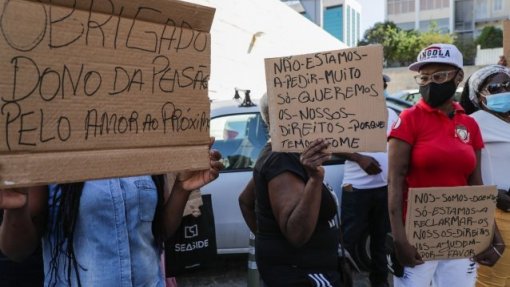 OBRIGADO
DONO DA PENSÃO
PELO AMOR AO PRÓXIMO
NÃO ESTAMOS
A PEDIR MUITO
SÓ QUEREMOS
OS NOSSOS
DIREITOS PORQUE
TEMOS FOME
ANGOLA
NÓS SOMOS DOENTES
SÓ ESTAMOS A
RECLARMAR OS
NOSSOS DIREITOS
NOS AJUDEM
POR FAVOR
SEASIDE